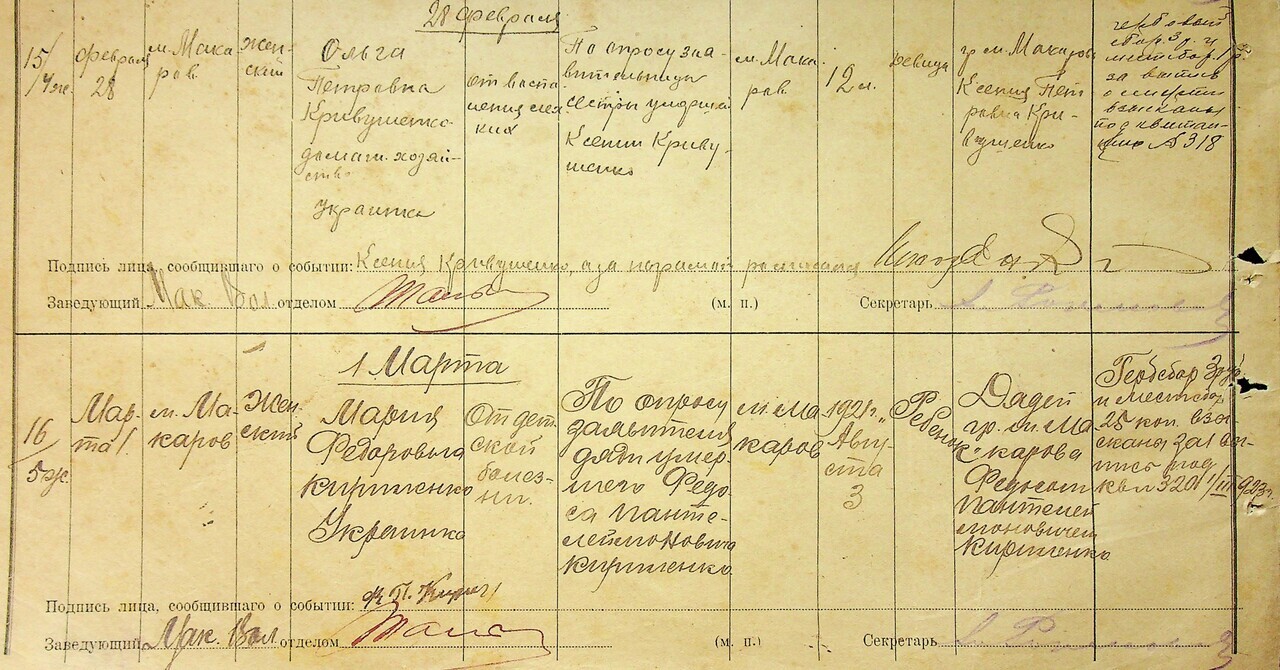 28 февраля
15/
4 ж.
февраля
28
м. Мака
ров
жен-
ский
Ольга
Петровна
Кривушенко
домаш. хозяй-
ство
Украинка
От воспа
ления
ких
По опросу зая
вительницы
сестры умершей
Ксении Криву
шенко
м. Мака
ров
12 л.
девица
гр. м. Макарова
Ксения Пет
ровна Кри-
вушенко
гербовый
сбор 3 р. и
мест. сбор 1 р.
за выпись
о смерти
взысканы
под квитан-
цию № 318
Подпись лица, сообщившего о событии: Ксения Кривушенко, а за неграмотн расписался
Заведующий Мак. Вол отделом (м. п.) Секретарь
1 Марта
16/
5 ж.
Мар-
та 1.
м. Ма-
каров
Жен-
ский
Мария
Федоровна
Кириленко
Украинка
От дет-
ской
болез-
ни.
По опросу
заявителя
дяди умер-
шего Федо-
са Панте-
леймоновича
Кириленко
м. Ма
каров
1921 г.
Авгу-
ста
3
Ребенок
Дядей
гр. м. Ма-
карова
Федосом
Пантелей
моновичем
Кириленко
Гербсбор 3 руб
и местсбор
25 коп. взы-
сканы за вы-
пись под
кв № 320 1/III 923 г.
Подпись лица, сообщившего о событии: Ф. П. Кирил
Заведующий Мак. Вол отделом (м. п.) Секретарь